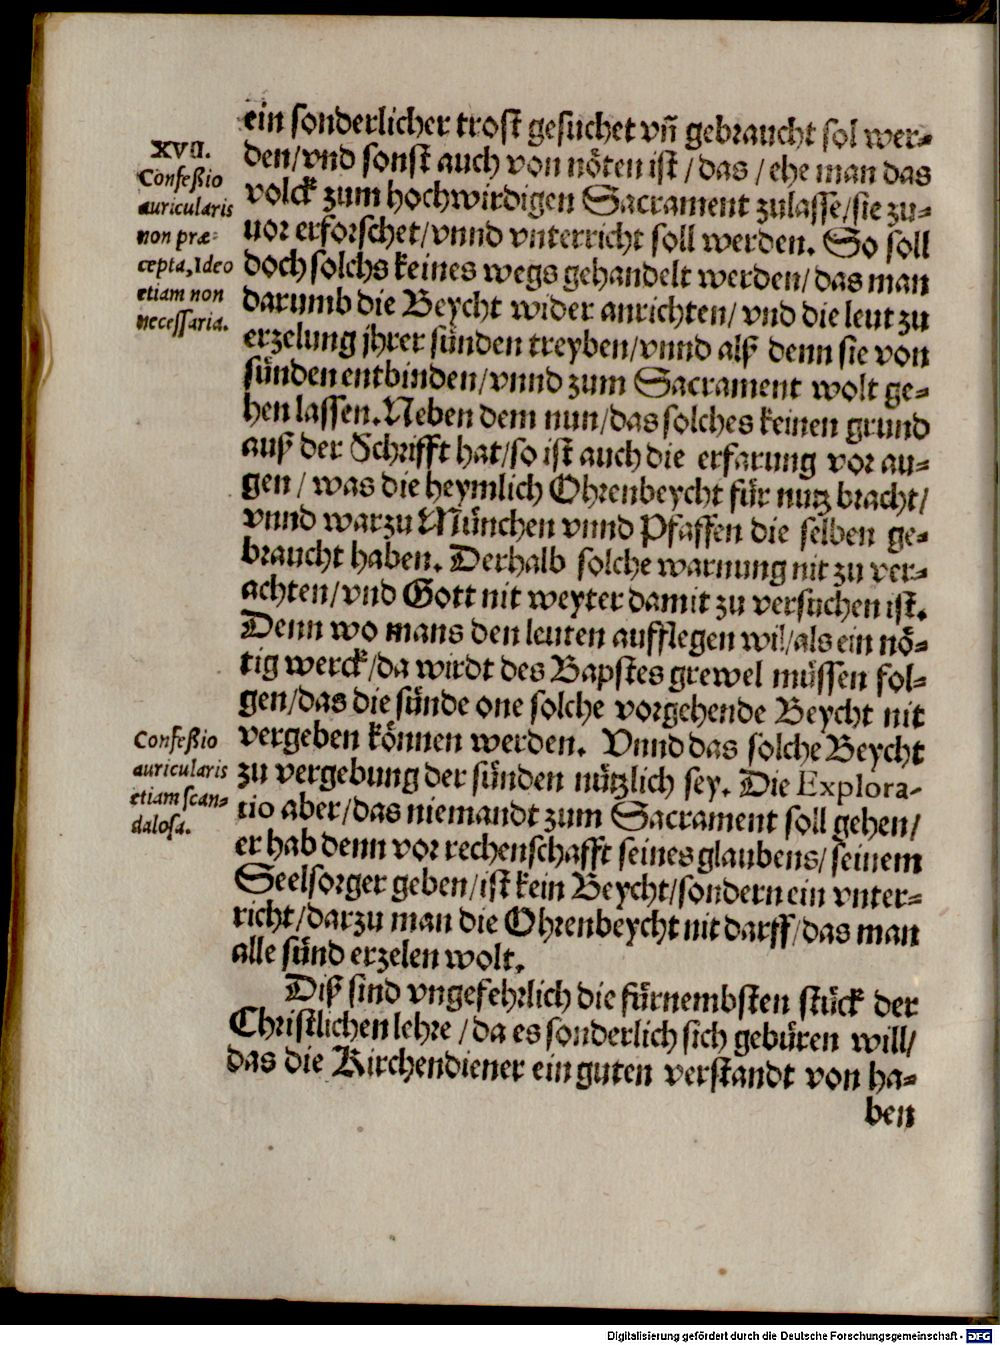 ein sonderlicher trost gesuchet vñ gebraucht sol wer-
den/vnd sonst auch von nöten ist/das/ehe man das
volck zum hochwirdigen Sacrament zulasse/sie zu-
uor erforschet/vnnd vnterricht soll werden. So soll
doch solchs keines wegs gehandelt werden/das man
darumb die Beycht wider anrichten/vnd die leut zu
erzelung jhrer sünden treyben/vnnd alß denn sie von
sünden entbinden/vnnd zum Sacrament wolt ge-
hen lassen. Neben dem nun/das solches keinen grund
auß der Schrifft hat/so ist auch die erfarung vor au-
gen/was die heymlich Ohrenbeycht für nutz bracht/
vnnd warzu München vnnd Pfaffen die selben ge-
braucht haben. Derhalb solche warnung nit zu ver-
achten/vnd Gott nit weyter damit zu versuchen ist.
Denn wo mans den leuten aufflegen wil/als ein nö-
tig werck/da wirdt des Bapstes grewel müssen fol-
gen/das die sünde one solche vorgehende Beycht nit
vergeben können werden. Vnnd das solche Beycht
zu vergebung der sünden nützlich sey. Die Explora-
tio aber/das niemandt zum Sacrament soll gehen/
er hab denn vor rechenschafft seines glaubens/seinem
Seelsorger geben/ist kein Beycht/sondern ein vnter-
richt/darzu man die Ohrenbeycht nit darff/das man
alle sünd erzelen wolt.
Diß sind vngefehrlich die fürnembsten stück der
Christlichen lehre/da es sonderlich sich gebüren will/
das die Kirchendiener ein guten verstandt von ha-
ben
XVII.
Confeßio
auricularis
non præ-
cepta, Ideo
etiam non
necessaria.
Confeßio
auricularis
etiam scan-
dalosa.
Digitalisierung gefördert durch die Deutsche Forschungsgemeinschaft - DFG